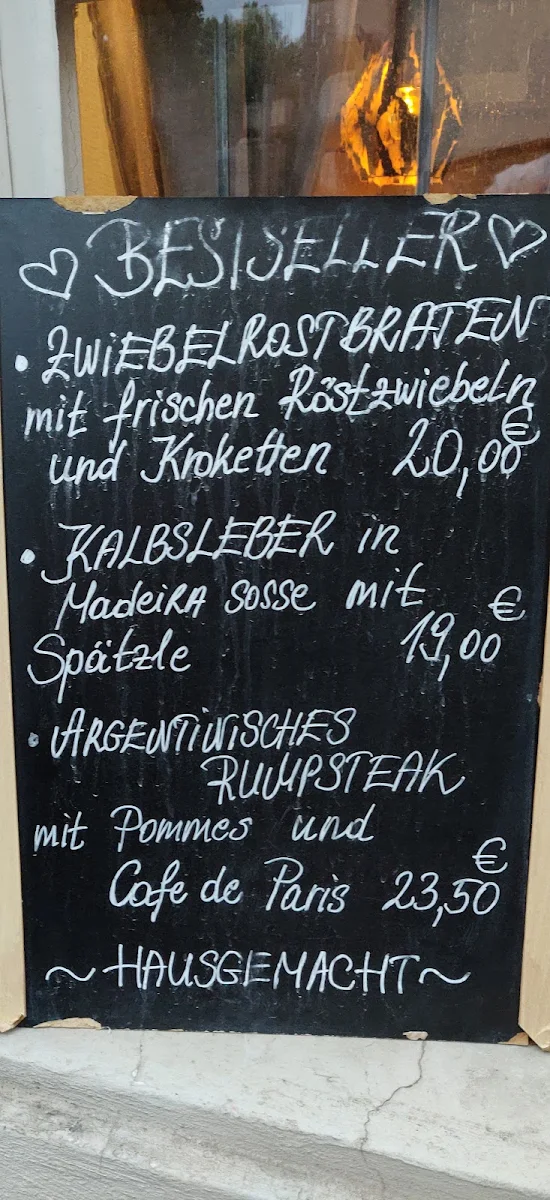 ♡ BESTSELLER ♡
• ZWIEBELROSTBRATEN
mit frischen Röstzwiebeln
und Kroketten 20,00 €
• KALBSLEBER in
MadeiRA sosse mit
Spätzle 19,00 €
• ARGENTINISCHES
RUMPSTEAK
mit Pommes und
Cafe de Paris 23,50 €
~ HAUSGEMACHT ~